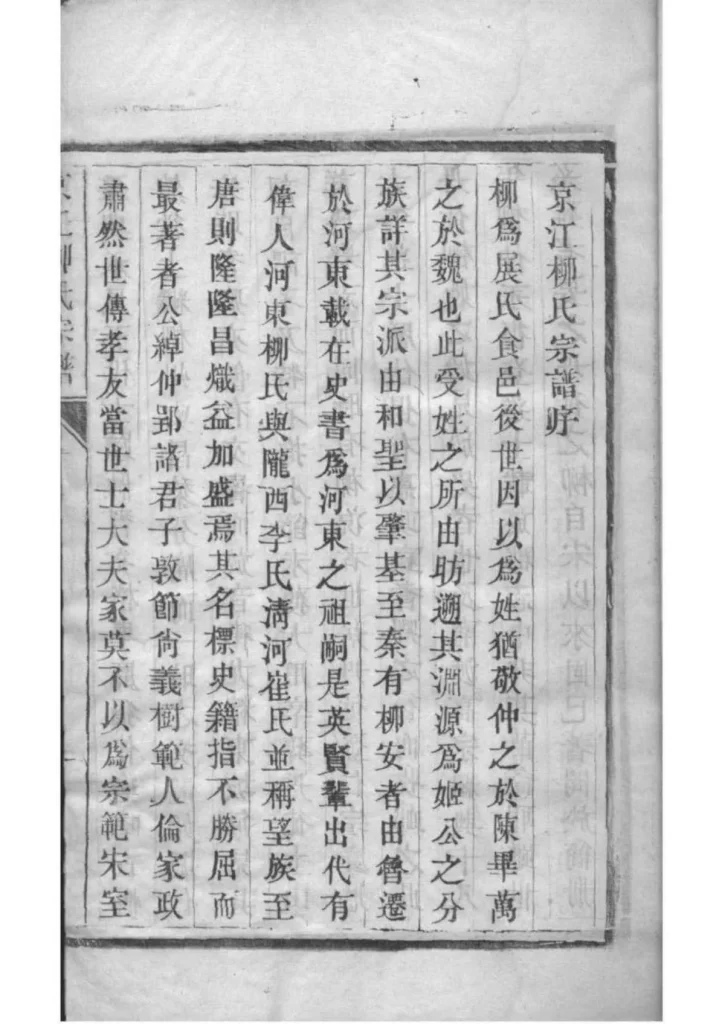 京江柳氏宗譜序
柳為展氏食邑後世因以為姓猶敬仲之於陳畢萬
之於魏也此受姓之所由昉遡其淵源為姬公之分
族詳其宗派由和聖以肇基至秦有柳安者由魯遷
於河東載在史書為河東之祖嗣是英賢輩出代有
偉人河東柳氏與隴西李氏淸河崔氏並稱望族至
唐則隆隆昌熾益加盛焉其名標史籍指不勝屈而
最著者公綽仲郢諸君子敦節尙義樹範人倫家政
肅然世傳孝友當世士大夫家莫不以為宗範宋室
京江柳氏宗譜